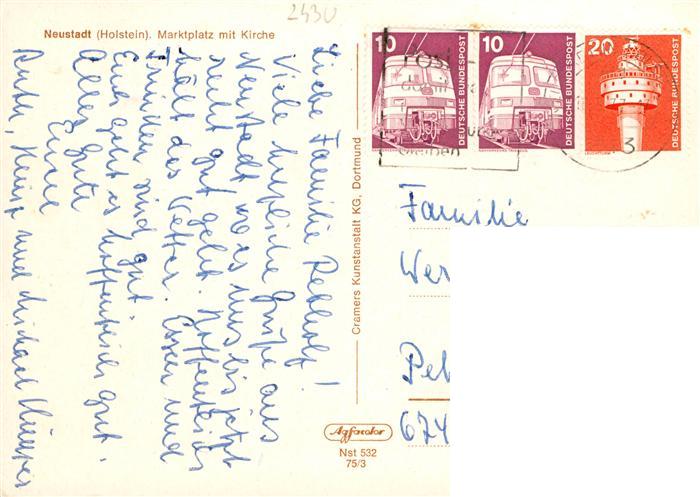 2430
Neustadt (Holstein). Marktplatz mit Kirche
Liebe Familie
Viele herzliche Grüße aus
Neustadt wo es uns bis jetzt
recht gut geht. Hoffentlich
hält das Wetter. Essen und
Trinken sind gut.
Euch geht es hoffentlich gut.
Alles gute
Eure
Ruth, Heinz und Michael
Cramers Kunstanstalt KG, Dortmund
Agfacolor
Nst 532
75/3
10
DEUTSCHE BUNDESPOST
10
DEUTSCHE BUNDESPOST
20
DEUTSCHE BUNDESPOST
3
Familie
Wer
Pet
674